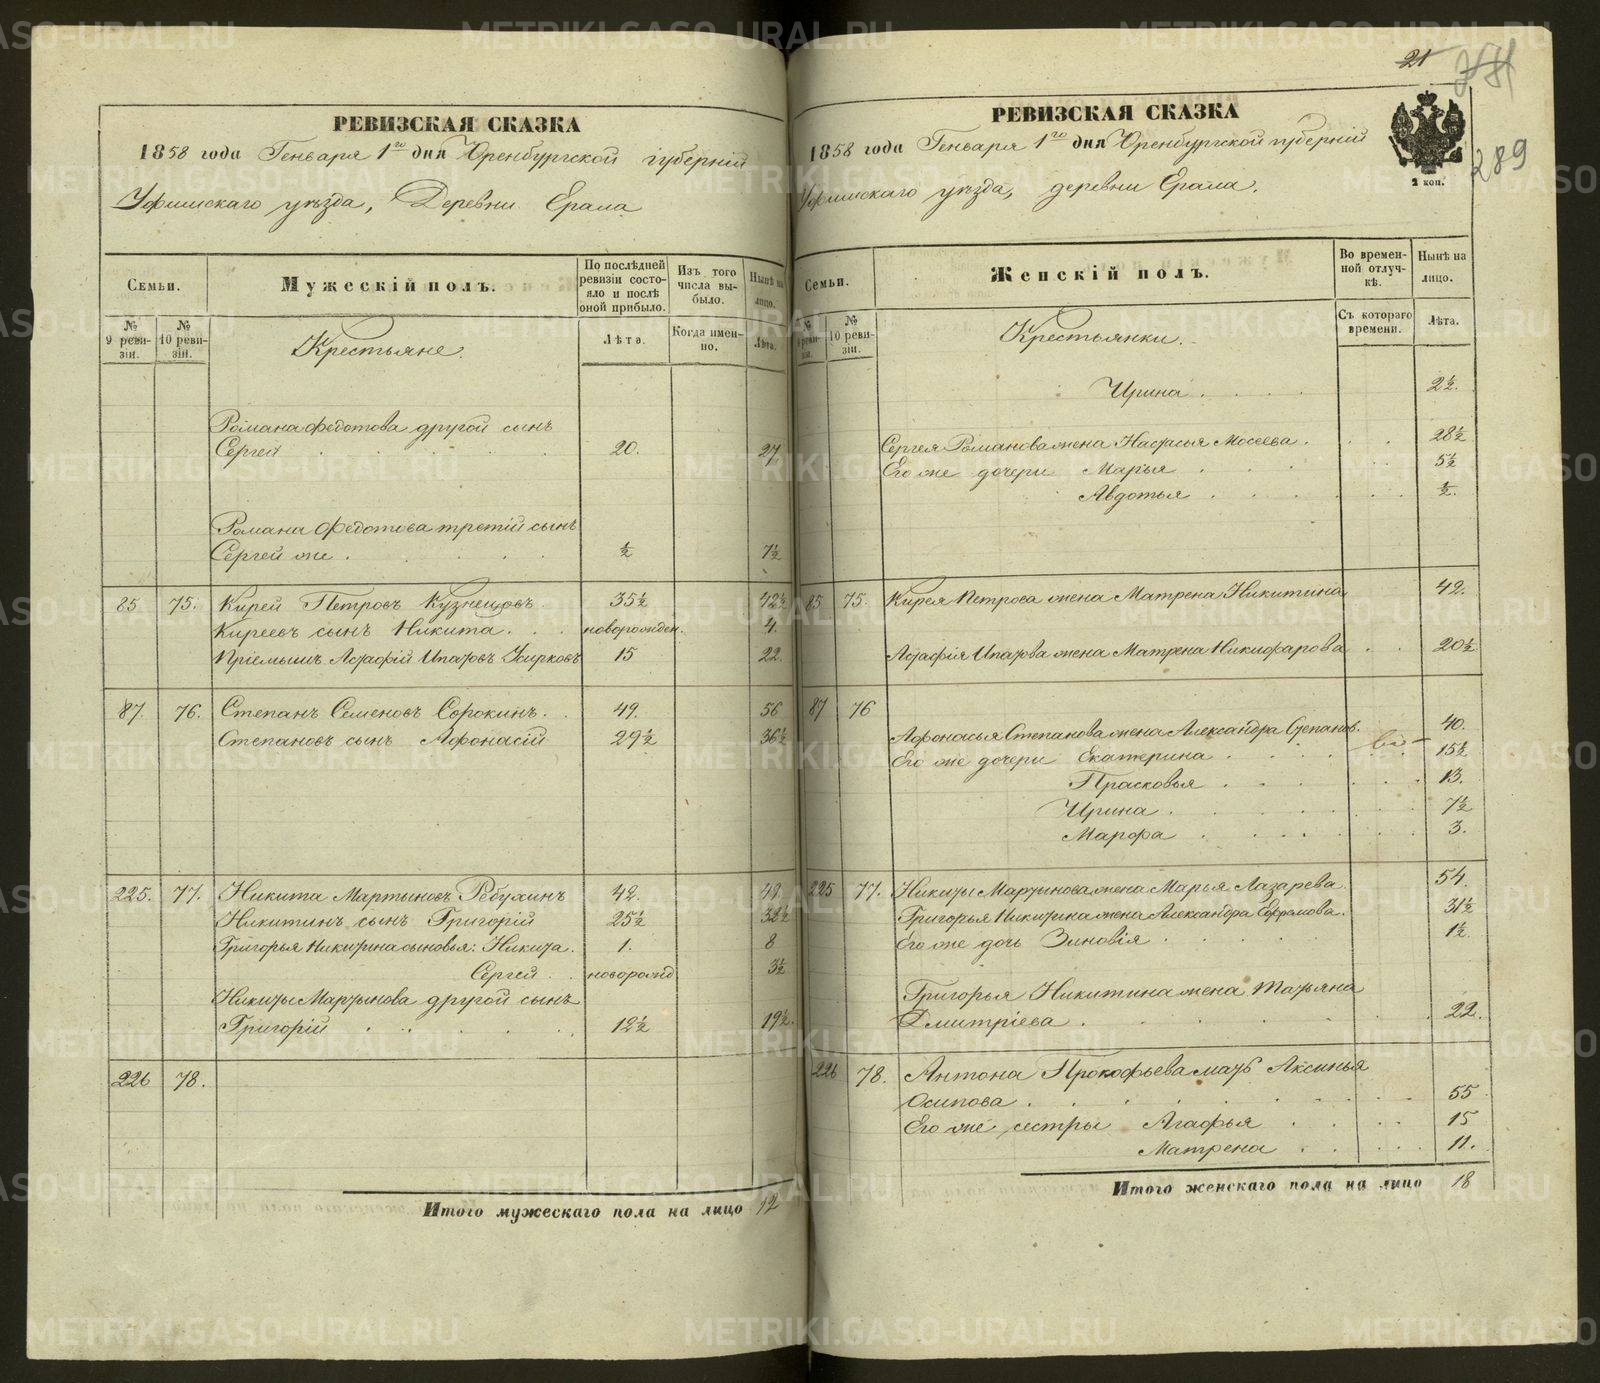 РЕВИЗСКАЯ СКАЗКА
1858 года Генваря 1го дня Оренбургской губерніи
Уфимскаго уѣзда, Деревни Ерала
Семьи.
Мужескій полъ.
По послѣдней ревизіи состояло и послѣ оной прибыло.
Изъ того числа выбыло.
Нынѣ на лицо.
№ 9 ревизіи.
№ 10 ревизіи.
Крестьяне.
Лѣта.
Когда именно.
Лѣта.
Романа Федотова другой сынъ
Сергей 20. 27
Романа Федотова третій сынъ
Сергей же ½ 7½
85 75. Кирей Петровъ Кузнецовъ 35½ 42½
Киреевъ сынъ Никита новорожден. 4.
Пріемышъ Астафій Ипатовъ 15 22
87. 76. Степанъ Семеновъ Сорокинъ. 49. 56
Степановъ сынъ Афонасій 29½ 36½
225. 77. Никита Мартыновъ 42. 49.
Никитинъ сынъ Григорій 25½ 32½
Григорья Никитина сыновья: Никита. 1. 8
Сергей новорожд 3½
Никиты Мартынова другой сынъ
Григорій 12½ 19½.
226 78.
Итого мужескаго пола на лицо 12
21
289
РЕВИЗСКАЯ СКАЗКА
2 коп.
1858 года Генваря 1го дня Оренбургской губерніи
Уфимскаго уѣзда, деревни Ерала.
Семьи.
Женскій полъ.
Во временной отлучкѣ.
Нынѣ на лицо.
№ 9 ревизіи.
№ 10 ревизіи.
Крестьянки.
Съ котораго времени.
Лѣта.
Ирина 2½.
Сергея Романова жена Настасья Мосеева. 28½
Его же дочери Марья 5½
Авдотья ½.
85 75. Кирея Петрова жена Матрена Никитина 42.
Астафія Ипатова жена Матрена Никифарова 20½
87 76
Афонасья Степанова жена Александра Степанов. 40.
Его же дочери Екатерина 15½
Прасковья 13.
Ирина 7½
Марфа 3.
225 77. Никиты Мартынова жена Марья Лазарева 54.
Григорья Никитина жена Александра Ефремова. 31½
Его же дочь Зиновія 1½
Григорья Никитина жена Татьяна
Дмитріева 22.
226 78. Антона Прокофьева мать Аксинья
Осипова 55
Его же сестры Агафья 15
Матрена 11.
Итого женскаго пола на лицо 18
METRIKI.GASO-URAL.RU